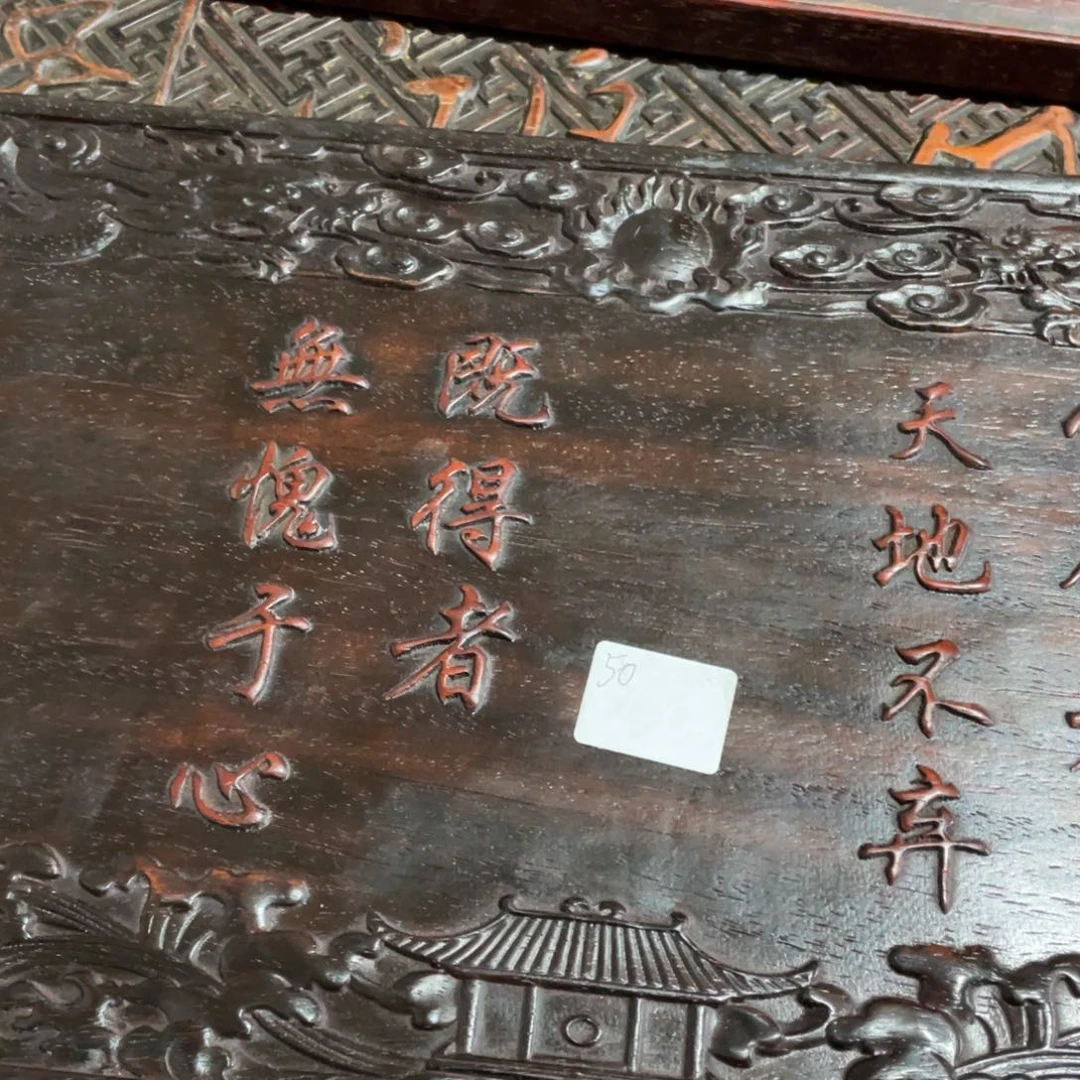 天地不弃
既得者
無愧于心
50